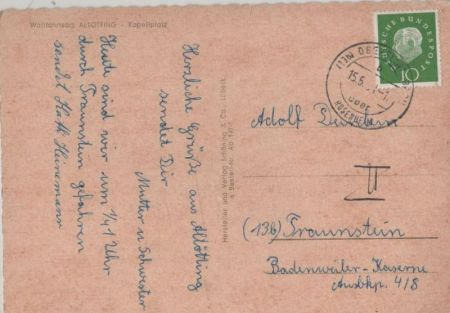 Wallfahrtsort ALTÖTTING - Kapellplatz
Herzliche Grüße aus Altötting
sendet Dir
Mutter u Schwester
Heute sind wir um 1/4 1 Uhr
durch Traunstein gefahren
sendet
Hersteller und Verlag Schöning & Co., Lübeck
DEUTSCHE BUNDESPOST
10
15.5.
über
ROSENHEIM
Adolf
II
(13b) Traunstein
Badenweiler-Kaserne
Ausbkp. 4/8